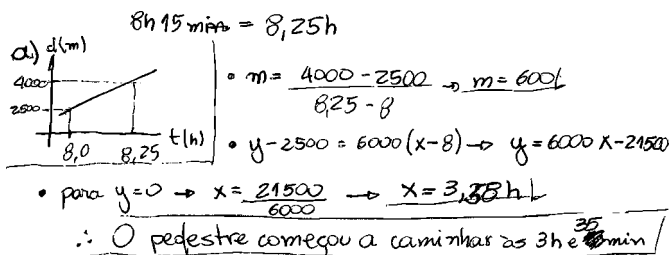 8h 15 min = 8,25h
a) d(m)
4000
2500
8,0 8,25 t(h)
• m = 4000 - 2500 / 8,25 - 8 → m = 600
• y - 2500 = 6000 (x - 8) → y = 6000 x - 21500
• para y = 0 → x = 21500 / 6000 → x = 3,58 h
∴ O pedestre começou a caminhar às 3h e 35 min